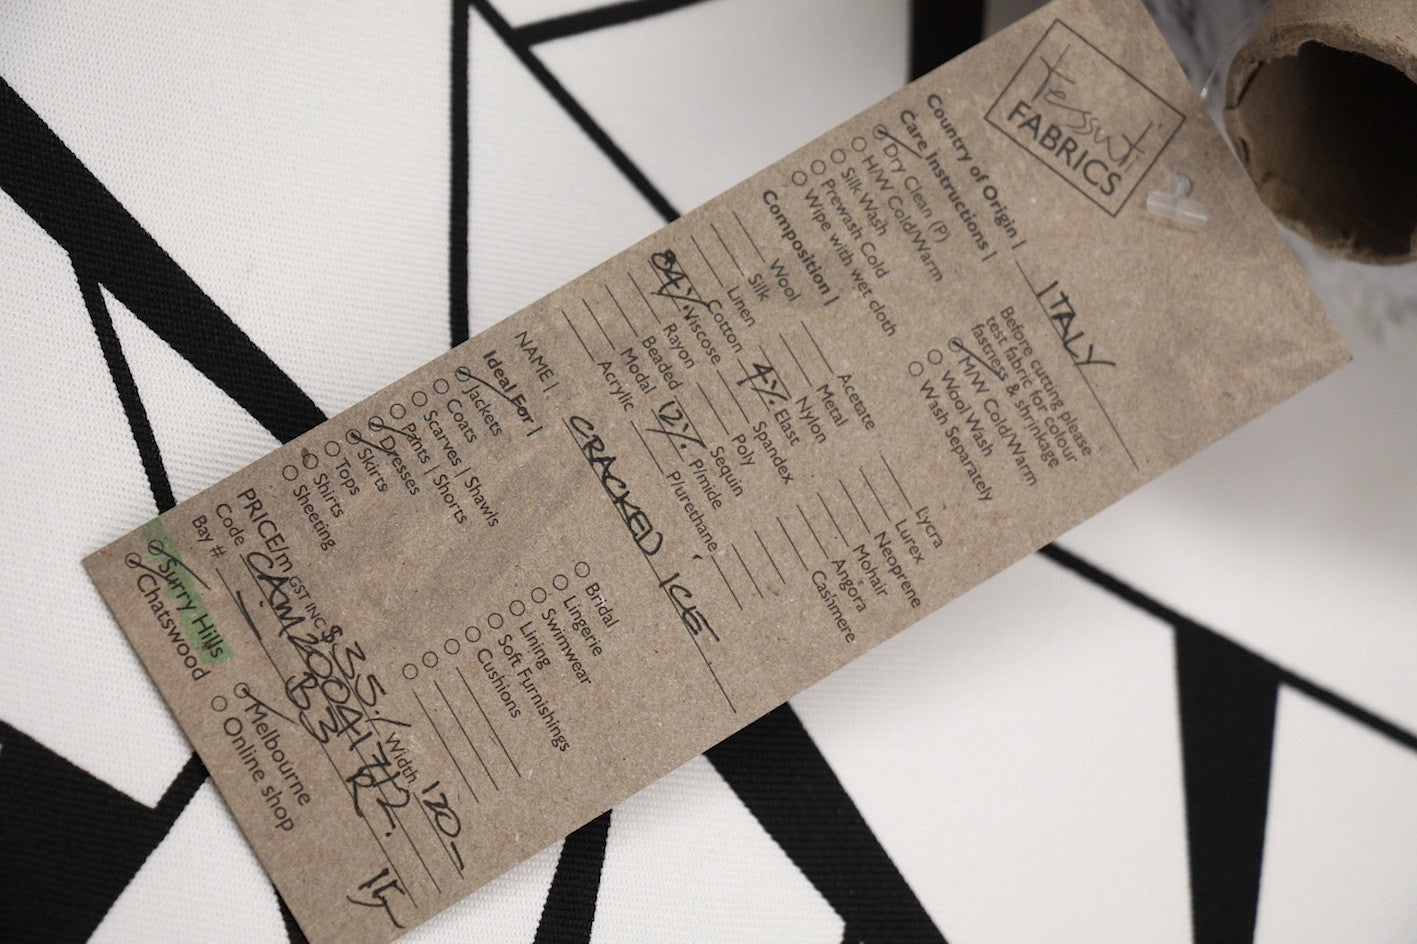 tessuti
FABRICS
Country of Origin | ITALY
Care Instructions |
Dry Clean (P)
H/W Cold/Warm
Silk Wash
Prewash Cold
Wipe with wet cloth
Before cutting please
test fabric for colour
fastness & shrinkage
M/W Cold/Warm
Wool Wash
Wash Separately
Composition |
Wool
Silk
Linen
Cotton
84% Viscose
Rayon
Beaded
Modal
Acrylic
Acetate
Metal
Nylon
4% Elast
Spandex
Poly
Sequin
12% P/mide
P/urethane
Lycra
Lurex
Neoprene
Mohair
Angora
Cashmere
NAME | CRACKED ICE
Ideal For |
Jackets
Coats
Scarves | Shawls
Pants | Shorts
Dresses
Skirts
Tops
Shirts
Sheeting
Bridal
Lingerie
Swimwear
Lining
Soft Furnishings
Cushions
PRICE/m GST INC $35./ Width 120-
Code
Bay # B3
Surry Hills
Chatswood
Melbourne
Online shop